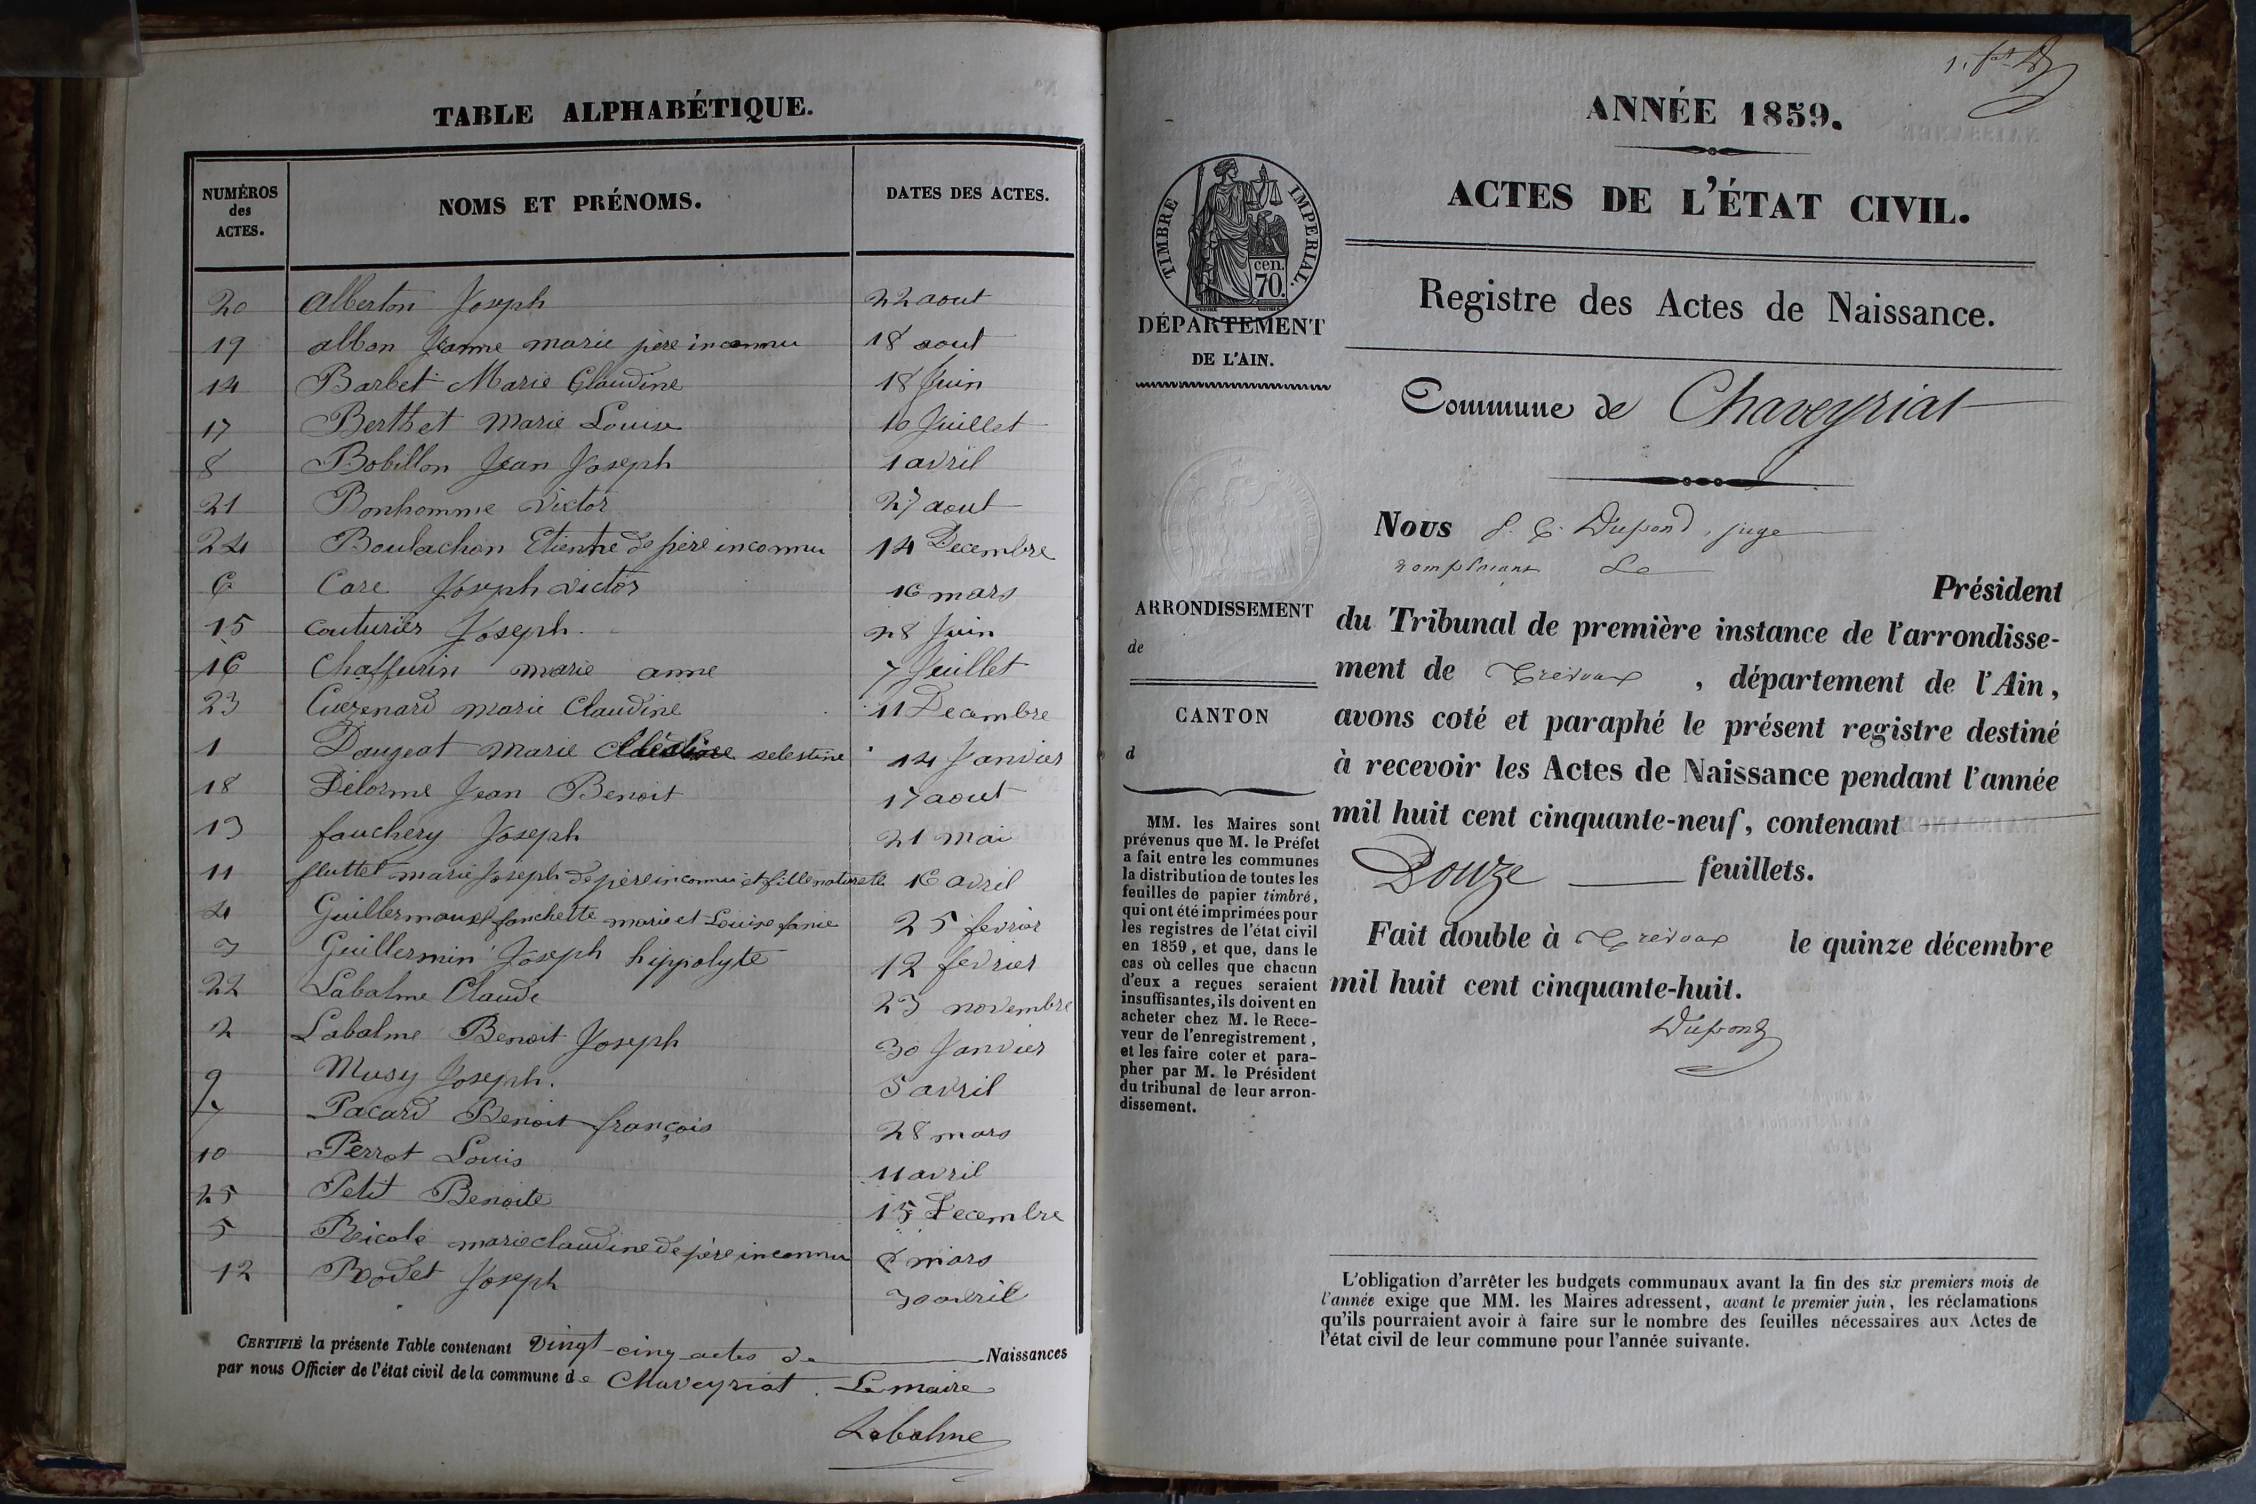 TABLE ALPHABÉTIQUE.
NUMÉROS des ACTES.
NOMS ET PRÉNOMS.
DATES DES ACTES.
20 Alberton Joseph 22 aout
19 albon Jeanne marie père inconnu 18 aout
14 Barbet Marie Claudine 18 Juin
17 Berthet Marie Louise 10 Juillet
8 Bobillon Jean Joseph 1 avril
21 Bonhomme Victor 27 aout
24 Boulachon Etienne de père inconnu 14 Decembre
6 Care Joseph victor 16 mars
15 couturier Joseph. 28 Juin
16 Chaffurin marie anne 7 Juillet
23 Cuezenard marie Claudine 11 Decembre
1 Daugeat Marie selestine 14 Janvier
18 Delorme Jean Benoit 17 aout
13 fauchery Joseph 21 mai
11 fluttet marie Joseph de père inconnu et fille naturelle 16 avril
4 fanchette marie et Louise fanie 25 fevrier
3 Guillermin Joseph hippolyte 12 fevrier
22 Labalme Claude 23 novembre
2 Labalme Benoit Joseph 30 Janvier
9 Musy Joseph. 5 avril
7 Pacard Benoit françois 28 mars
10 Perrot Louis 11 avril
25 Petit Benoite 15 Decembre
5 marie claudine de père inconnu 8 mars
12 Rodet Joseph 30 avril
CERTIFIÉ la présente Table contenant vingt-cinq actes de Naissances
par nous Officier de l'état civil de la commune de Chaveyriat. Le maire
Labalme
ANNÉE 1859.
ACTES DE L'ÉTAT CIVIL.
TIMBRE IMPERIAL.
cen.
70.
DÉPARTEMENT
DE L'AIN.
Registre des Actes de Naissance.
Commune de Chaveyriat
Nous Dupond, juge
remplaçant Le
Président
du Tribunal de première instance de l'arrondisse-
ment de Trévoux, département de l'Ain,
avons coté et paraphé le présent registre destiné
à recevoir les Actes de Naissance pendant l'année
mil huit cent cinquante-neuf, contenant
Douze feuillets.
Fait double à Trévoux le quinze décembre
mil huit cent cinquante-huit.
Dupond
ARRONDISSEMENT
de
CANTON
d
MM. les Maires sont
prévenus que M. le Préfet
a fait entre les communes
la distribution de toutes les
feuilles de papier timbré,
qui ont été imprimées pour
les registres de l'état civil
en 1859, et que, dans le
cas où celles que chacun
d'eux a reçues seraient
insuffisantes, ils doivent en
acheter chez M. le Rece-
veur de l'enregistrement,
et les faire coter et para-
pher par M. le Président
du tribunal de leur arron-
dissement.
L'obligation d'arrêter les budgets communaux avant la fin des six premiers mois de
l'année exige que MM. les Maires adressent, avant le premier juin, les réclamations
qu'ils pourraient avoir à faire sur le nombre des feuilles nécessaires aux Actes de
l'état civil de leur commune pour l'année suivante.